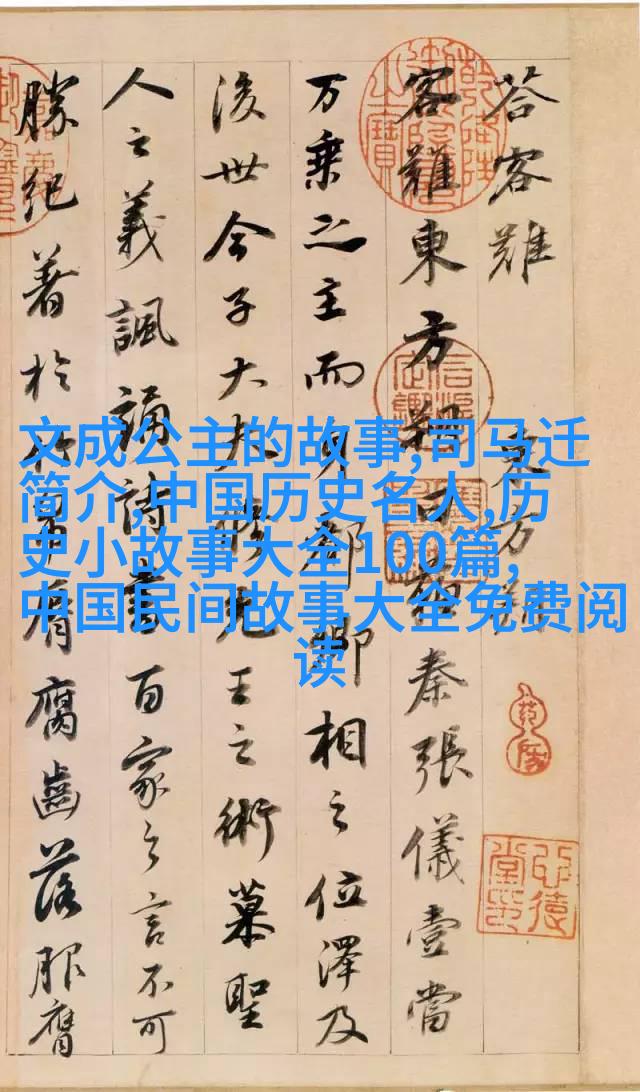 荅客難 東方朔
客難東方朔曰蘇秦張儀壹當
万乗之主而身都卿相之位澤及
後世今子大夫脩先王之術慕聖
人之義諷誦詩書百家之言不可
勝紀著於竹帛脣腐齒落服膺
文成公主的故事,司马迁
简介,中国历史名人,历
史小故事大全100篇,
中国民间故事大全免费阅
读